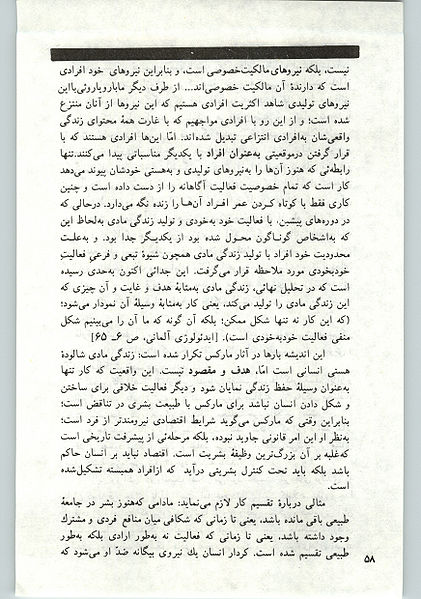 نیست، بلکه نیروهای مالکیت‌خصوصی است، و بنابراین نیروهای خود افرادی
است که دارندهٔ آن مالکیت خصوصی‌اند... از طرف دیگر مابارویاروئی‌بااین
نیروهای تولیدی شاهد اکثریت افرادی هستیم که این نیروها از آنان منتزع
شده است؛ و از این رو با افرادی مواجهیم که با غارت همهٔ محتوای زندگی
واقعی‌شان به‌افرادی انتزاعی تبدیل شده‌اند. امّا این‌ها افرادی هستند که با
قرار گرفتن درموقعیتی به‌عنوان افراد با یکدیگر مناسباتی پیدا می‌کنند.تنها
رابطه‌ئی که هنوز آن‌ها را به‌نیروهای تولیدی و به‌هستی خودشان پیوند می‌دهد
کار است که تمام خصوصیت فعالیت آگاهانه را از دست داده است و چنین
کاری فقط با کوتاه کردن عمر افراد آن‌ها را زنده نگه می‌دارد. درحالی که
در دوره‌های پیشین، با فعالیت خود به‌خودی و تولید زندگی مادی به‌لحاظ این
که به‌اشخاص گوناگون محول شده بود از یکدیگر جدا بود، و به‌علت
محدودیت خود افراد با تولید زندگی مادی همچون شیوهٔ تبعی و فرعی فعالیتِ
خودبخودی مورد ملاحظه قرار می‌گرفت. این جدائی اکنون به‌حدی رسیده
است که در تحلیل نهائی، زندگی مادی به‌مثابهٔ هدف و غایت و آن چیزی که
این زندگی مادی را تولید می‌کند، یعنی کار به‌مثابهٔ وسیلهٔ آن نمودار می‌شود؛
(که این کار نه تنها شکل ممکن؛ بلکه آن گونه که ما آن را می‌بینیم شکل
منفی فعالیت خودبه‌خودی است). [ایدئولوژی آلمانی، ص ۶ـ ۶۵]
این اندیشه بارها در آثار مارکس تکرار شده است: زندگی مادی شالودهٔ
هستی انسانی است امّا، هدف و مقصود نیست. این واقعیت که کار تنها
به‌عنوان وسیلهٔ حفظ زندگی نمایان شود و دیگر فعالیت خلاقی برای ساختن
و شکل دادن انسان نباشد برای مارکس با طبیعت بشری در تناقض است؛
بنابراین وقتی که مارکس می‌گوید شرایط اقتصادی نیرومندتر از فرد است؛
به‌نظر او این امر قانونی جاوید نبوده، بلکه مرحله‌ئی از پیشرفت تاریخی است
که‌غلبه بر آن بزرگ‌ترین وظیفهٔ بشریت است. اقتصاد نباید بر انسان حاکم
باشد بلکه باید تحت کنترل بشریتی درآید که ازافراد همبسته تشکیل‌شده
است.
مثالی دربارهٔ تقسیم کار لازم می‌نماید: مادامی که‌هنوز بشر در جامعهٔ
طبیعی باقی مانده باشد، یعنی تا زمانی که شکافی میان منافع فردی و مشترك
وجود داشته باشد، یعنی تا زمانی که فعالیت نه به‌طور ارادی بلکه به‌طور
طبیعی تقسیم شده است. کردار انسان یك نیروی بیگانه ضدّ او می‌شود که
۵۸